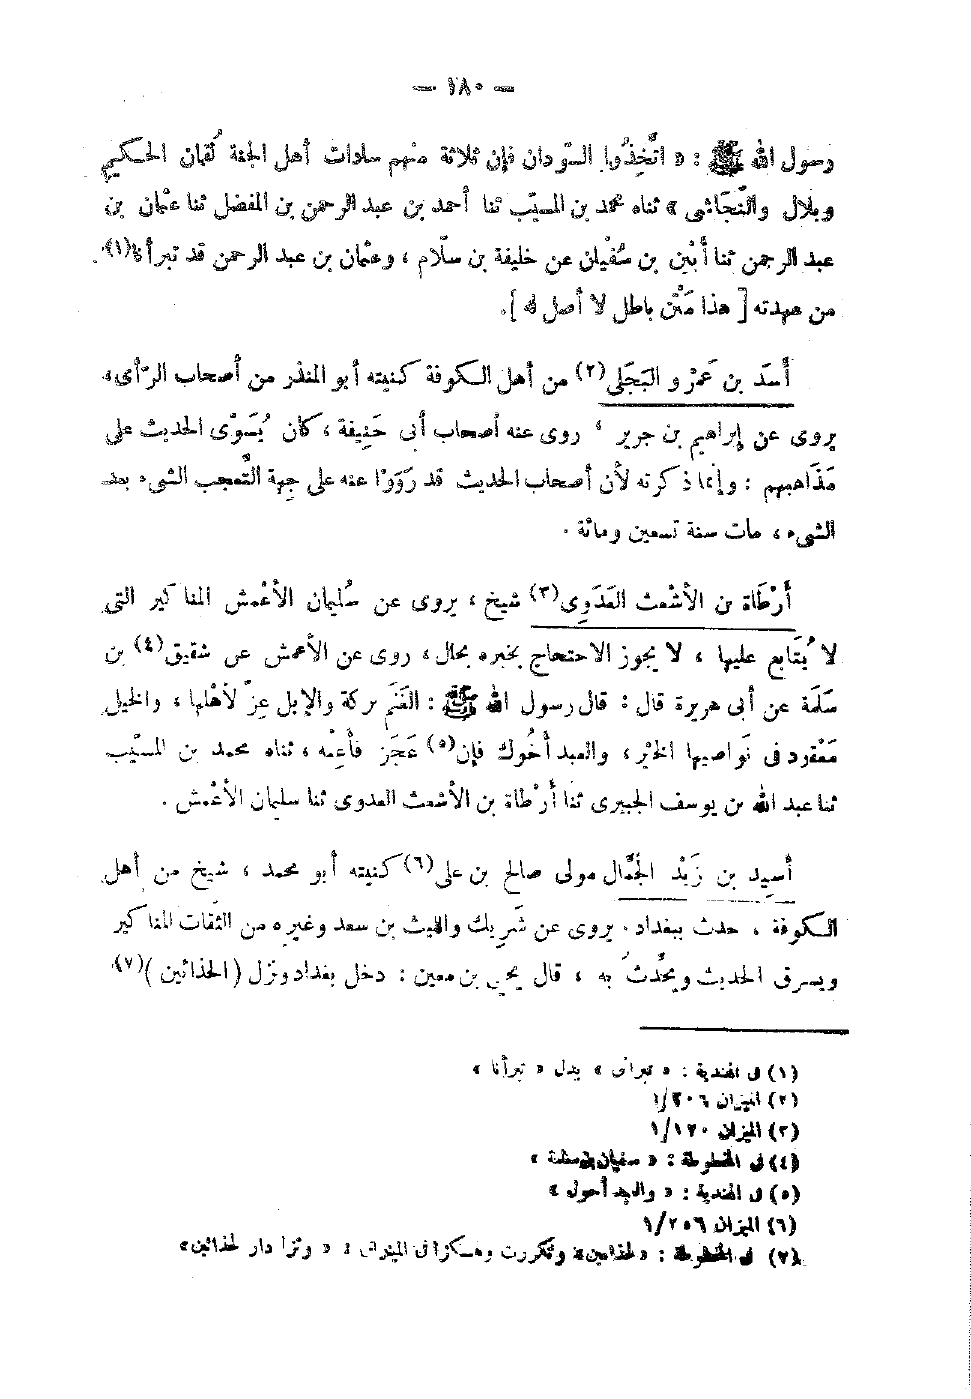 — ١٨٠ —
رسول الله ﷺ : « اتَّخِذُوا السّودان فإن ثلاثة منهم سادات أهل الجنة لُقمان الحكيم
وبلال والنَّجَاشى » ثناه محمد بن المسيّب ثنا أحمد بن عبد الرحمن بن المفضل ثنا عثمان بن
عبد الرحمن ثنا أُبَيْن بن سُفْيان عن خليفة بن سلّام ، وعثمان بن عبد الرحمن قد تبرأنا(١)
من عهدته [ هذا مَتْن باطل لا أصل له ].
أَسَد بن عَمْرو البَجَلى(٢) من أهل الكوفة كنيته أبو المنذر من أصحاب الرّأى ،
يروى عن إبراهيم بن جرير ، روى عنه أصحاب أبى حَنِيفة ، كان يُسَوّى الحديث على
مَذَاهبهم : وإنما ذكرته لأن أصحاب الحديث قد رَوَوْا عنه على جهة التَّعجب الشىء بعد
الشىء ، مات سنة تسعين ومائة .
أَرْطَاة بن الأشعث العَدَوِى(٣) شيخ ، يروى عن سُليمان الأعْمش المناكير التى
لا يُتَابع عليها ، لا يجوز الاحتجاج بخبره بحال ، روى عن الأعمش عن شقيق(٤) بن
سَلَمة عن أبى هريرة قال : قال رسول الله ﷺ : الغَنَم بركة والإبل عِزّ لأهْلها ، والخيل
مَعْقود فى نَواصيها الخَيْر ، والعبد أخُوك فإن(٥) عَجَز فأعِنْه ، ثناه محمد بن المسيّب
ثنا عبد الله بن يوسف الجبيرى ثنا أَرْطاة بن الأشعث العدوى ثنا سليمان الأعْمش .
أَسِيد بن زَيْد الجَمَّال مولى صالح بن على(٦) كنيته أبو محمد ، شيخ من أهل
الكوفة ، حدث ببغداد . يروى عن شَرِيك والليث بن سعد وغيره من الثقات المناكير
ويسرق الحديث ويُحَدِّث به ، قال يحيى بن معين : دخل بغداد ونزل ( الحذائين )(٧)
(١) فى الهندية : « تبرأت » بدل « تبرأنا »
(٢) الميزان ١/٢٠٦
(٣) الميزان ١/١٧٠
(٤) فى المخطوطة : « سفيان بن سلمة »
(٥) فى الهندية : « والعبد أحول »
(٦) الميزان ١/٢٥٦
(٧) فى المخطوطة : « لحذامين » وتكررت وهكذا فى الميزان : « ونزل دار لحذائين »